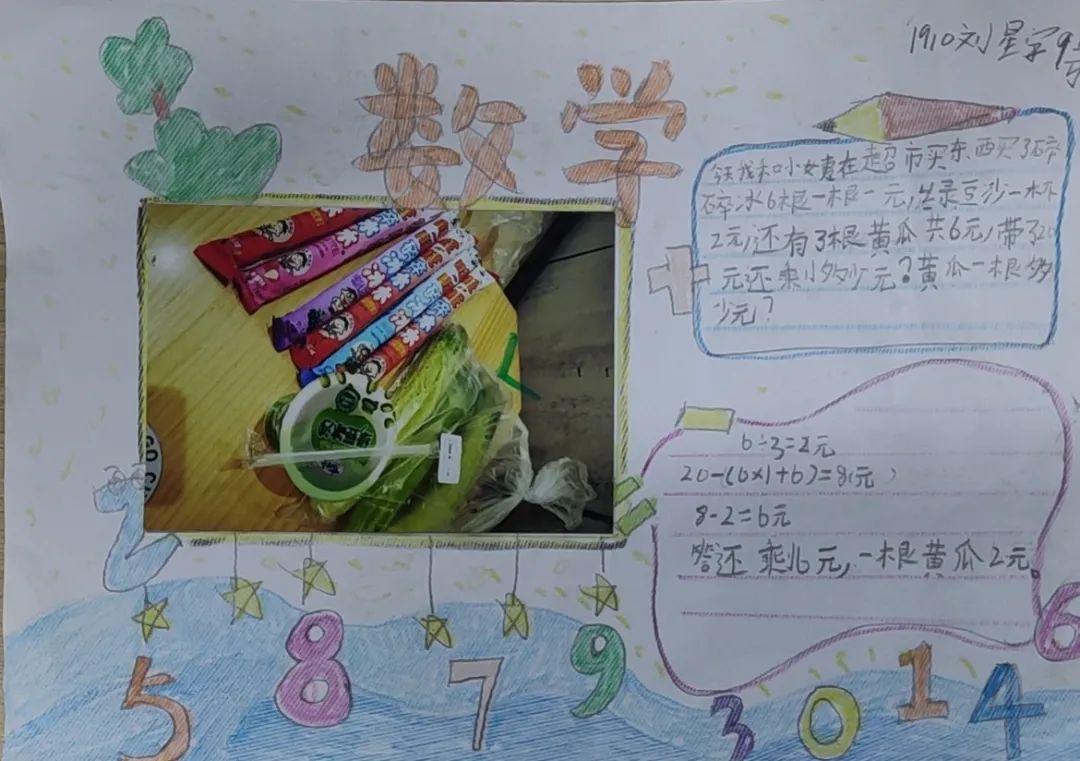 数学
1910刘星宇9号
今天我和小女麦在超市买东西买了碎
碎冰6根一根一元,绿豆沙一杯
2元,还有3根黄瓜共6元,带了20
元还乘小多少元?黄瓜一根多
少元?
6÷3=2元
20-(6×1+6)=8(元)
8-2=6元
答还乘小6元,一根黄瓜2元。
2
5
8
7
9
3
0
1
4
6